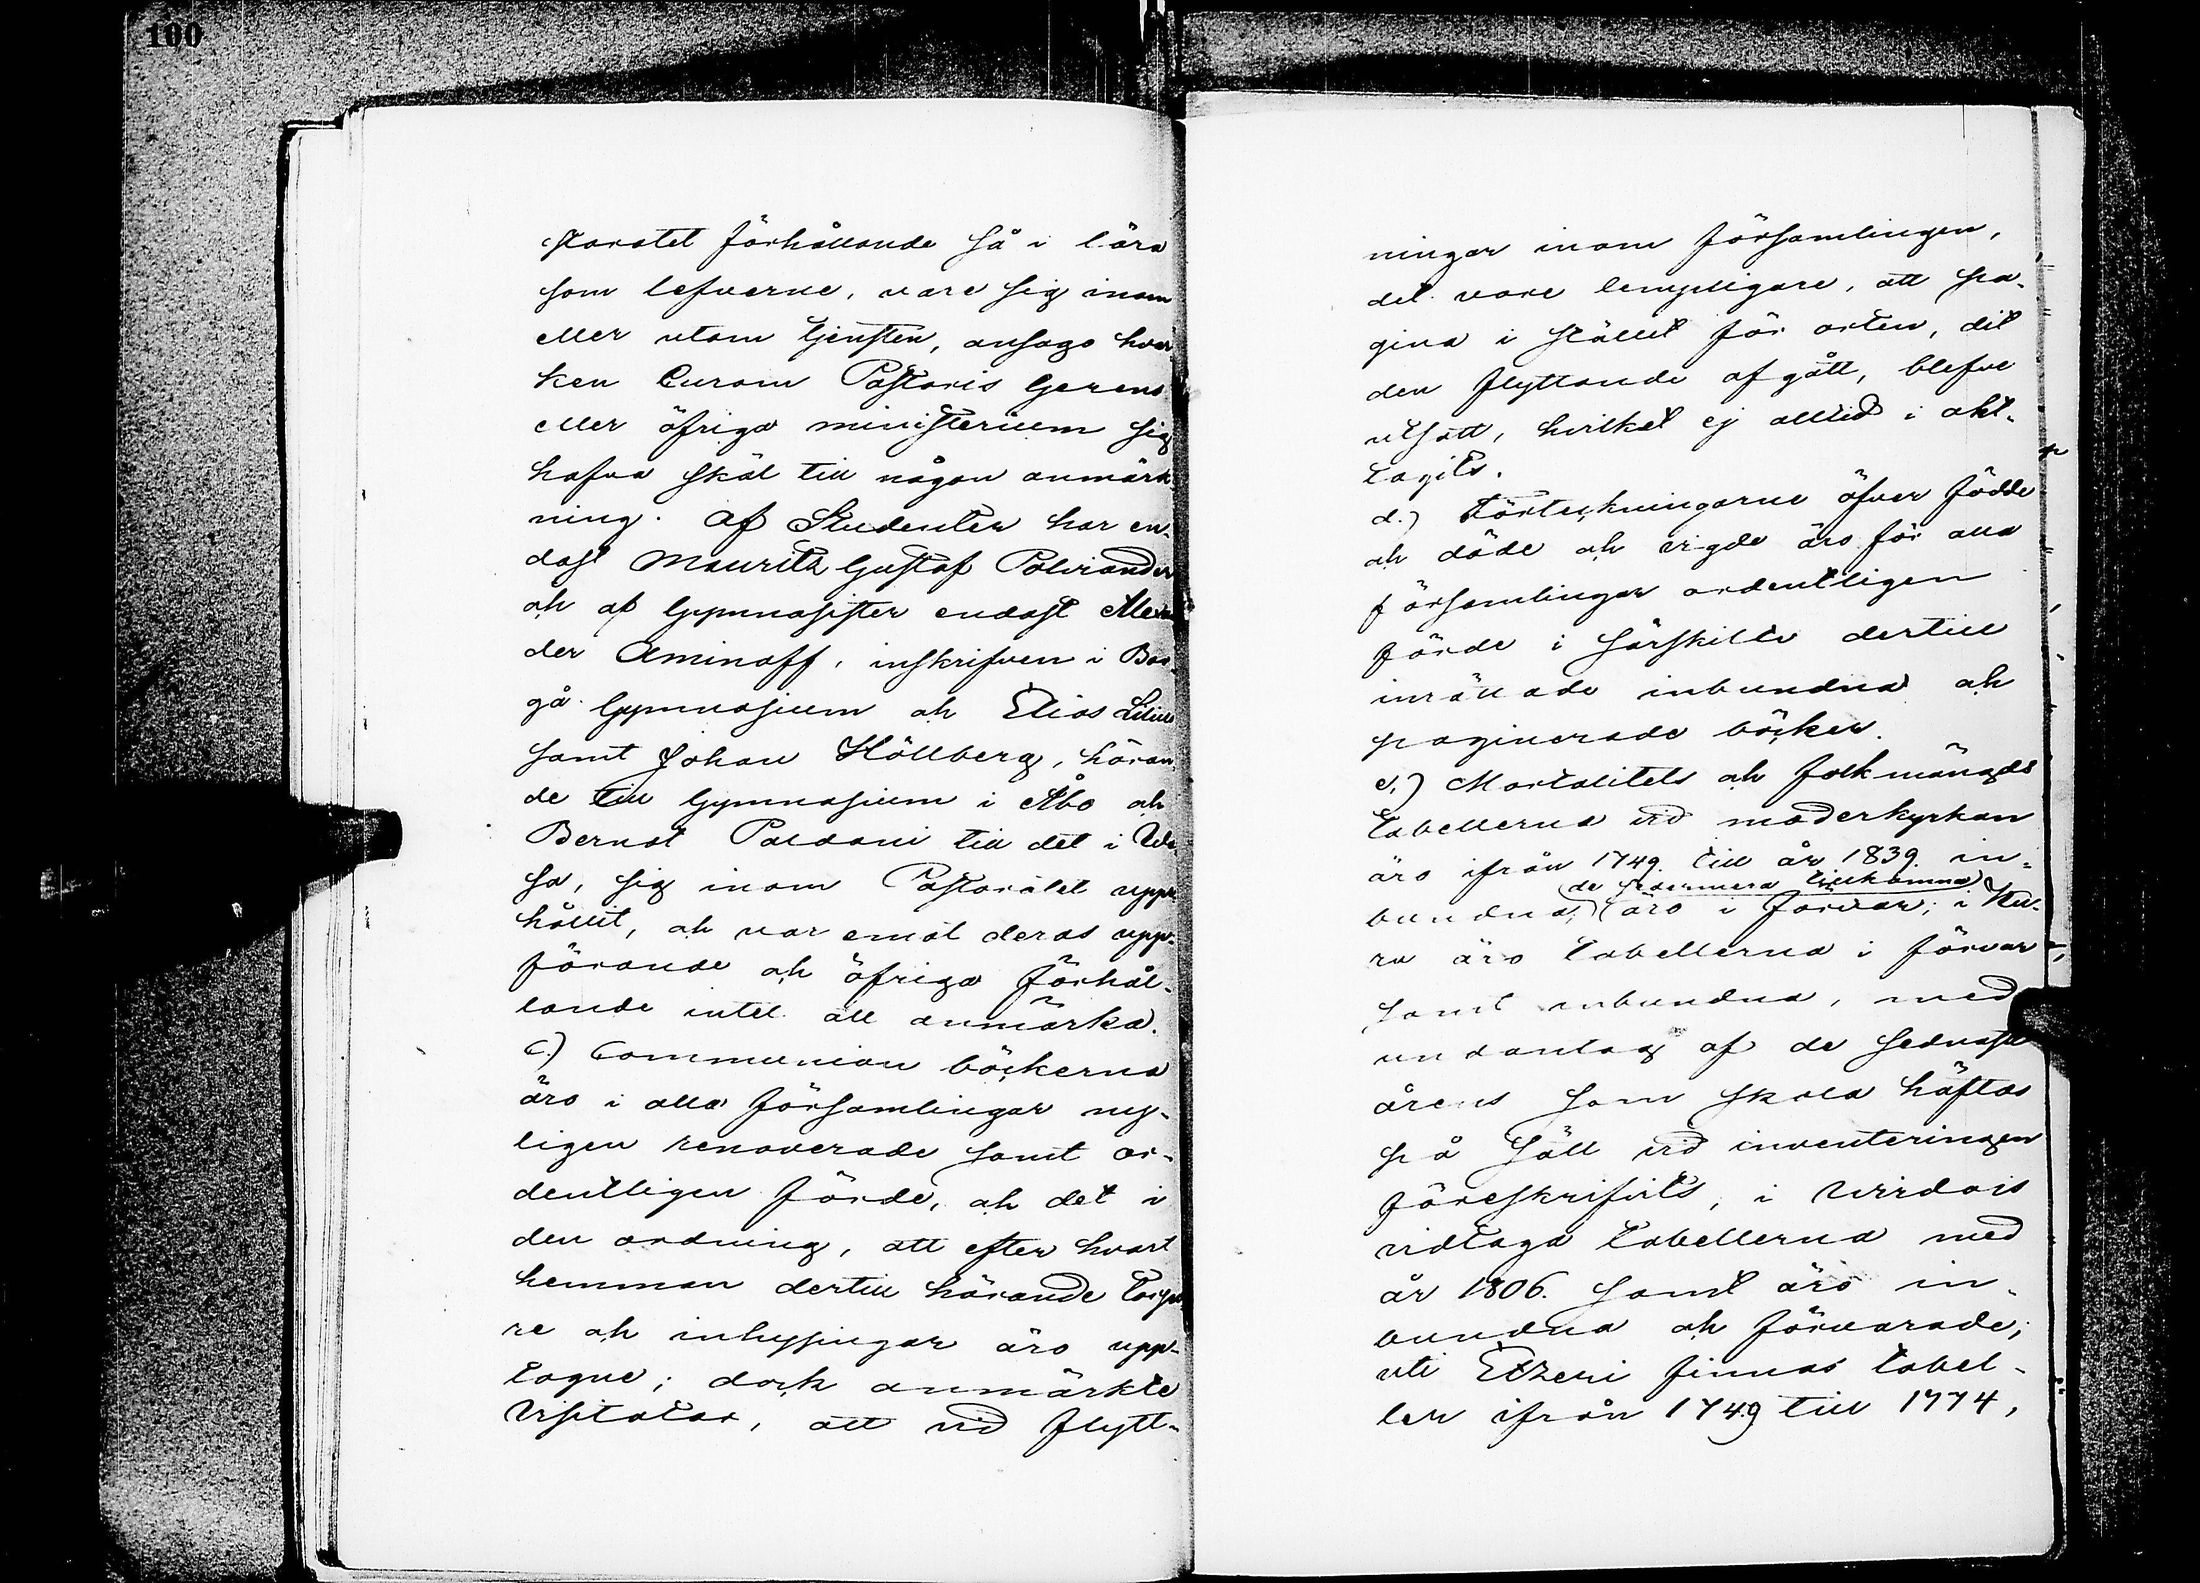 100
storatet förhållande så i lära
som lefverne, vare sig inom
eller utom tjensten, ansågo hvar
ken Curam Pastoris Gerens
eller öfriga ministerium sig
hafva skäl till någon anmärk
ning. Af Studenter har en-
dast Mauritz Gustaf Polviander
och af Gymnasister endast Alexan
der Aminoff, inskrifven i Bor-
gå Gymnasium och Elias Lilius
samt Johan Hällberg, höran-
de till Gymnasium i Åbo och
Bernat Paldani till det i Wa-
sa, sig inom Pastoratet uppe
hållit, och var emot deras upp-
förande och öfriga förhål-
lande intet att anmärka.
c.) Communion böckerna
äro i alla församlingar ny-
ligen renoverade samt or-
dentligen förde, och det i
den ordning, att efter hvart
hemman dertill hörande torpa
re och inhysingar äro upp-
tagne; dock anmärkte
Visitator, att vid flytt-
ningar inom församlingen,
det vore lempligare, att pa-
gina i stället för orten, dit
den flyttande afgått, blefve
utsatt, hvilket ej alltid i akt-
tagits.
d.) Förteckningarne öfver födde
och döde och vigde äro för alla
församlingar ordentligen
förde i särskilte dertill
inrättade inbundna och
paginerade böcker.
e.) Mortalitets och folkmängds
tabellerna vid moderkyrkan
äro ifrån 1749. till år 1839. in-
(de sedermera tillkomna)
bundna; äro i förvar; i Ku-
ru äro tabellerna i förvar,
samt inbundna, med
undantag af de sednaste
årens som skola häftas
på sätt vid inventeringen
föreskrifvits, i Wirdois
vidtaga tabellerna med
år 1806. samt äro in-
bundna och förvarade;
uti Etzeri finnas tabel-
ler ifrån 1749 till 1774,